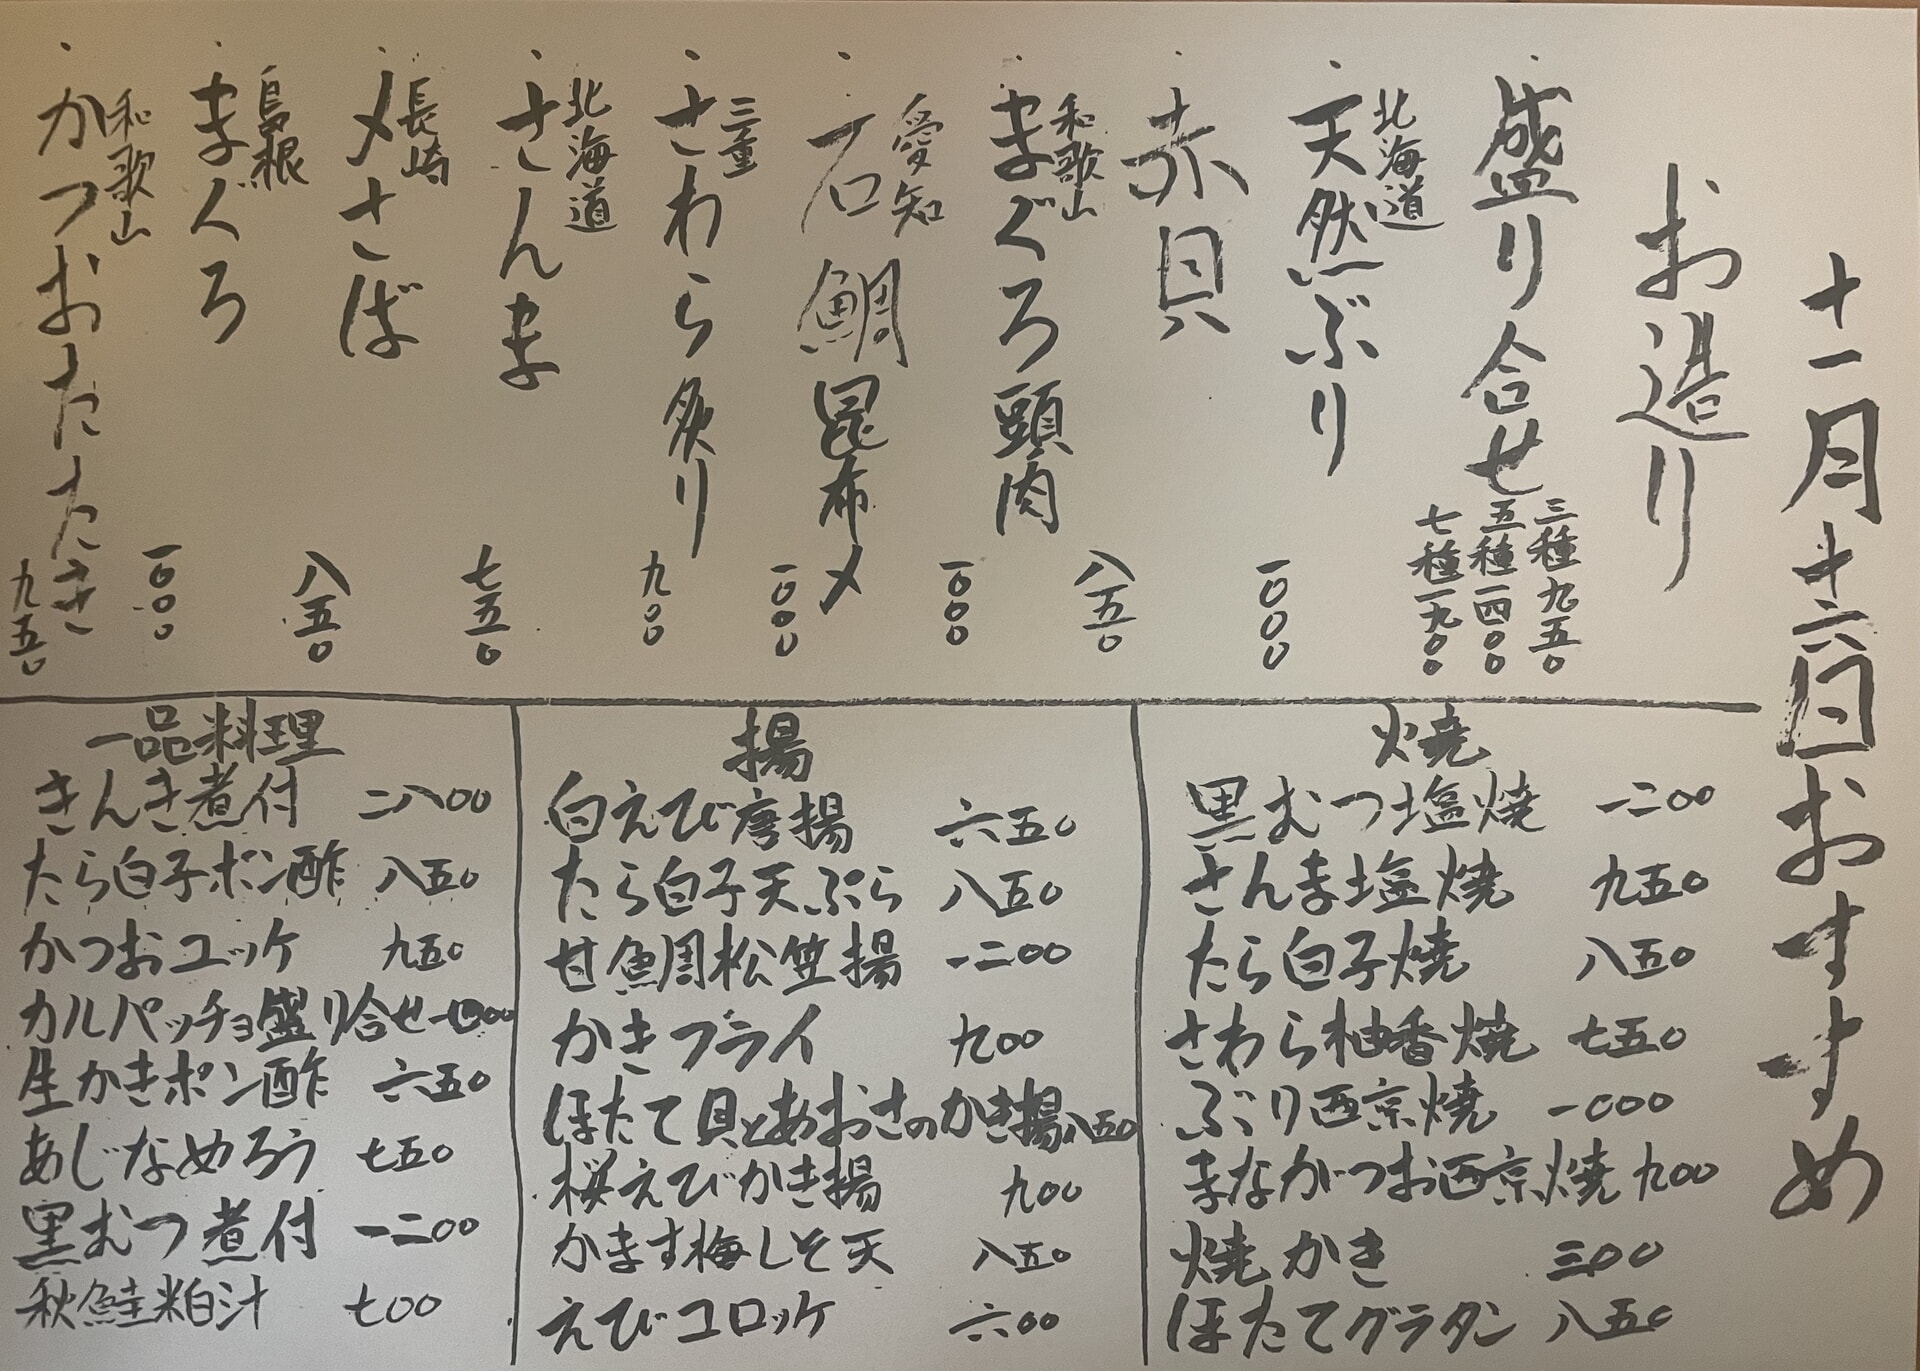 十一月十六日おすすめ
お造り
盛り合せ
三種 九五〇
五種 一四〇〇
七種 一九〇〇
北海道
天然ぶり 一〇〇〇
赤貝 八五〇
和歌山
まぐろ頭肉 一〇〇〇
愛知
石鯛昆布〆 一〇〇〇
三重
さわら炙り 九〇〇
北海道
さんま 七五〇
長崎
〆さば 八五〇
島根
まぐろ 一〇〇〇
和歌山
かつおたたき 九五〇
焼
黒むつ塩焼 一二〇〇
さんま塩焼 九五〇
たら白子焼 八五〇
さわら柚香焼 七五〇
ぶり西京焼 一〇〇〇
まながつお西京焼 九〇〇
焼かき 三〇〇
ほたてグラタン 八五〇
揚
白えび唐揚 六五〇
たら白子天ぷら 八五〇
甘鯛松笠揚 一二〇〇
かきフライ 九〇〇
ほたて貝とあおさのかき揚 八五〇
桜えびかき揚 九〇〇
かます梅しそ天 八五〇
えびコロッケ 六〇〇
一品料理
きんき煮付 二八〇〇
たら白子ポン酢 八五〇
かつおユッケ 九五〇
カルパッチョ盛り合せ
生かきポン酢 六五〇
あじなめろう 七五〇
黒むつ煮付 一二〇〇
秋鮭粕汁 七〇〇